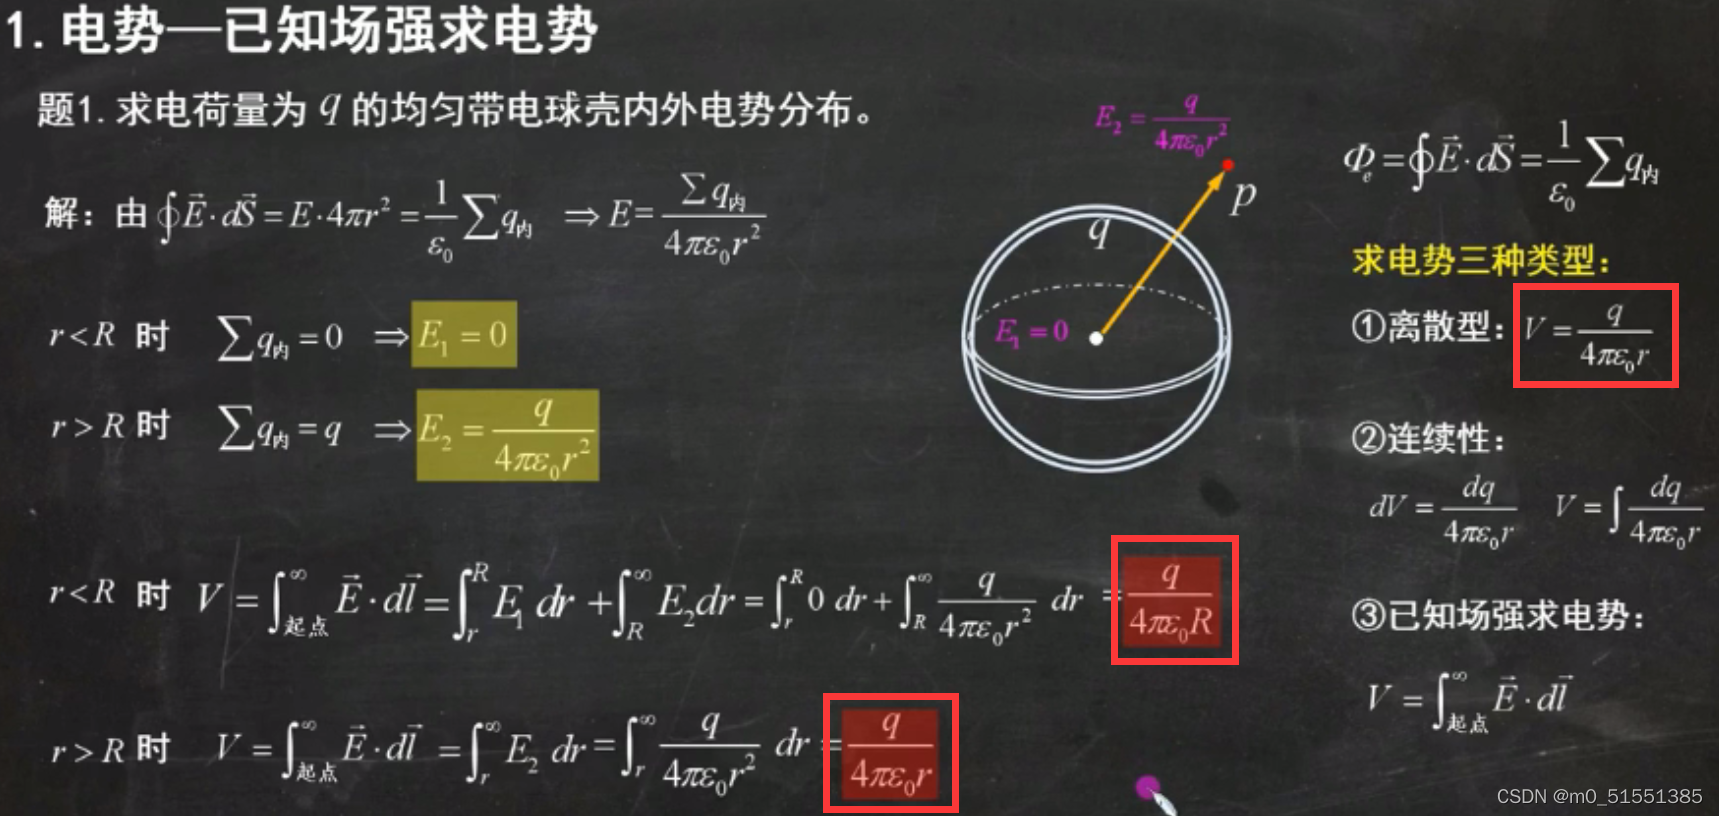 1.电势—已知场强求电势
题1.求电荷量为 q 的均匀带电球壳内外电势分布。
解：由 ∮E⃗·dS⃗ = E·4πr² = 1/ε₀ ∑q内 ⇒ E = ∑q内/4πε₀r²
r<R 时 ∑q内 = 0 ⇒ E₁ = 0
r>R 时 ∑q内 = q ⇒ E₂ = q/4πε₀r²
r<R 时 V = ∫起点^∞ E⃗·dl⃗ = ∫r^R E₁ dr + ∫R^∞ E₂dr = ∫r^R 0 dr + ∫R^∞ q/4πε₀r² dr = q/4πε₀R
r>R 时 V = ∫起点^∞ E⃗·dl⃗ = ∫r^∞ E₂ dr = ∫r^∞ q/4πε₀r² dr = q/4πε₀r
E₂ = q/4πε₀r²
p
q
E₁ = 0
Φe = ∮E⃗·dS⃗ = 1/ε₀ ∑q内
求电势三种类型：
①离散型： V = q/4πε₀r
②连续性：
dV = dq/4πε₀r V = ∫dq/4πε₀r
③已知场强求电势：
V = ∫起点^∞ E⃗·dl⃗
CSDN @m0_51551385